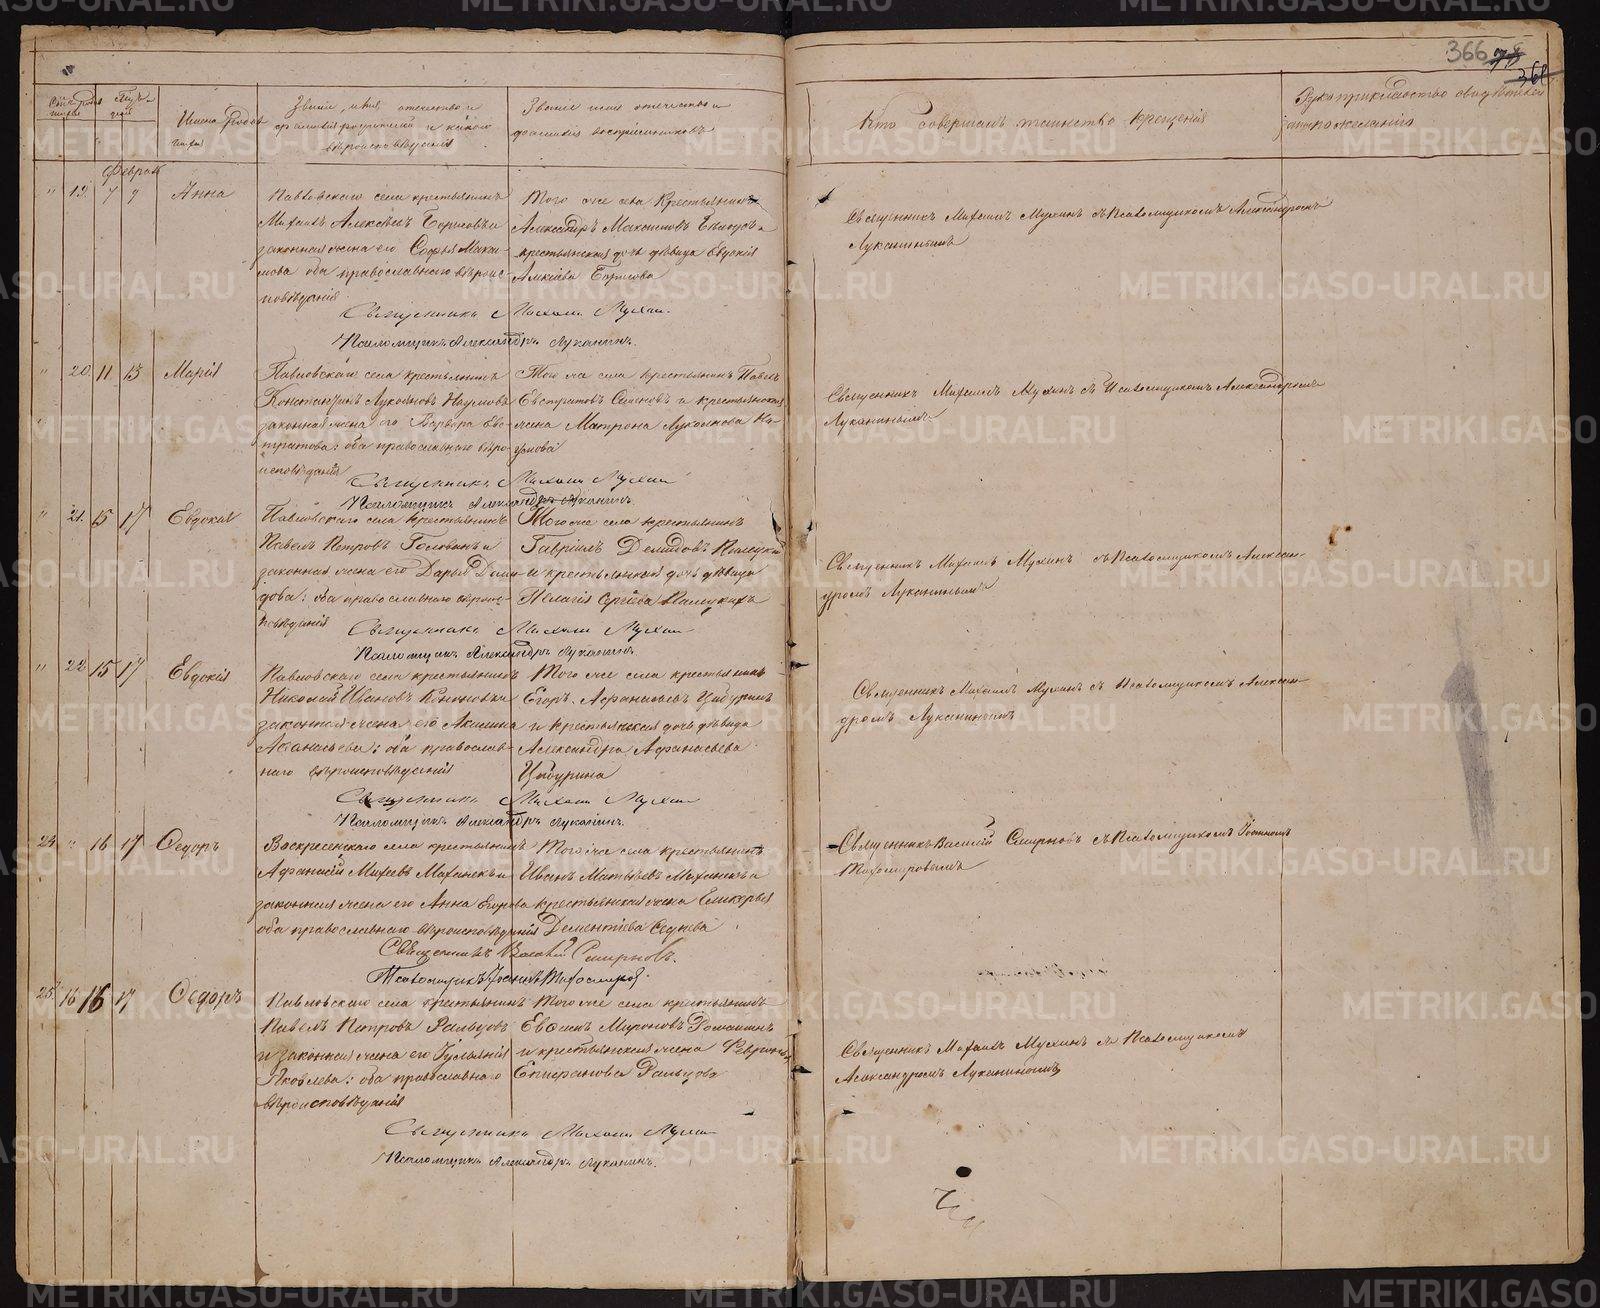 366
Имена родив
Званіе, имя отечество и
фамилія родителей и какого
вѣроисповѣданія
Званіе имя отечество и
фамилія воспріемниковъ
Кто совершалъ таинство крещенія
Рукоприкладство свидѣтелей
по желанію
Февраль
" 19. 7 9 Анна
Павловскаго села крестьянинъ
Михаилъ Алексѣевъ Борисовъ и
законная жена его Софья Макси-
мова оба православнаго вѣроис-
повѣданія
Того же села крестьянинъ
Александръ Максимовъ
крестьянская дочь дѣвица Евдокія
Алексѣева Борисова
Священникъ Михаилъ Мухинъ
Псаломщикъ Александръ Луканинъ.
Священникъ Михаилъ Мухинъ съ Псаломщикомъ Александромъ
Луканинымъ
" 20. 11 13 Марія
Павловскаго села крестьянинъ
Константинъ Лукояновъ Наумовъ
законная жена его Варвара Евс-
тратова: оба православнаго вѣро
исповѣданія
Того же села крестьянинъ Павелъ
Евстратовъ Семеновъ и крестьянская
жена Матрона Лукоянова На-
умова
Священникъ Михаилъ Мухинъ
Псаломщикъ Александръ Луканинъ.
Священникъ Михаилъ Мухинъ съ Псаломщикомъ Александромъ
Луканинымъ
" 21. 15 17 Евдокія
Павловскаго села крестьянинъ
Павелъ Петровъ Головинъ и
законная жена его Дарья Деми-
дова: оба православнаго вѣроис-
повѣданія
Того же села крестьянинъ
Гавріилъ Демидовъ
и крестьянская дочь дѣвица
Пелагія Сергѣева
Священникъ Михаилъ Мухинъ
Псаломщикъ Александръ Луканинъ.
Священникъ Михаилъ Мухинъ съ Псаломщикомъ Алексан-
дромъ Луканинымъ
" 22 15 17 Евдокія
Павловскаго села крестьянинъ
Николай Ивановъ
законная жена его Акилина
Афанасьева: оба православ-
наго вѣроисповѣданія
Того же села крестьянинъ
Егоръ Афанасьевъ Цибуринъ
и крестьянская дочь дѣвица
Александра Афанасьева
Цибурина
Священникъ Михаилъ Мухинъ
Псаломщикъ Александръ Луканинъ.
Священникъ Михаилъ Мухинъ съ Псаломщикомъ Алексан-
дромъ Луканинымъ
" 16 17 Ѳедоръ
Воскресенскаго села крестьянинъ
Афанасій Михеевъ Махнекъ и
законная жена его Анна Егорова
оба православнаго вѣроисповѣданія
Того же села крестьянинъ
Иванъ Матвѣевъ Махнекъ и
крестьянская жена Гликерья
Дементіева Седнева
Священникъ Василій Смирновъ.
Псаломщикъ Іоаннъ Тихомировъ.
Священникъ Василій Смирновъ съ Псаломщикомъ Іоанномъ
Тихомировымъ
25 16 16 17 Ѳедоръ
Павловскаго села крестьянинъ
Павелъ Петровъ Ральцовъ
и законная жена его Гульянія
Яковлева: оба православнаго
вѣроисповѣданія
Того же села крестьянинъ
Евфимъ Мироновъ Ромашинъ
и крестьянская жена Февронья
Епифанова Ральцова
Священникъ Михаилъ Мухинъ
Псаломщикъ Александръ Луканинъ.
Священникъ Михаилъ Мухинъ съ Псаломщикомъ
Александромъ Луканинымъ
METRIKI.GASO-URAL.RU